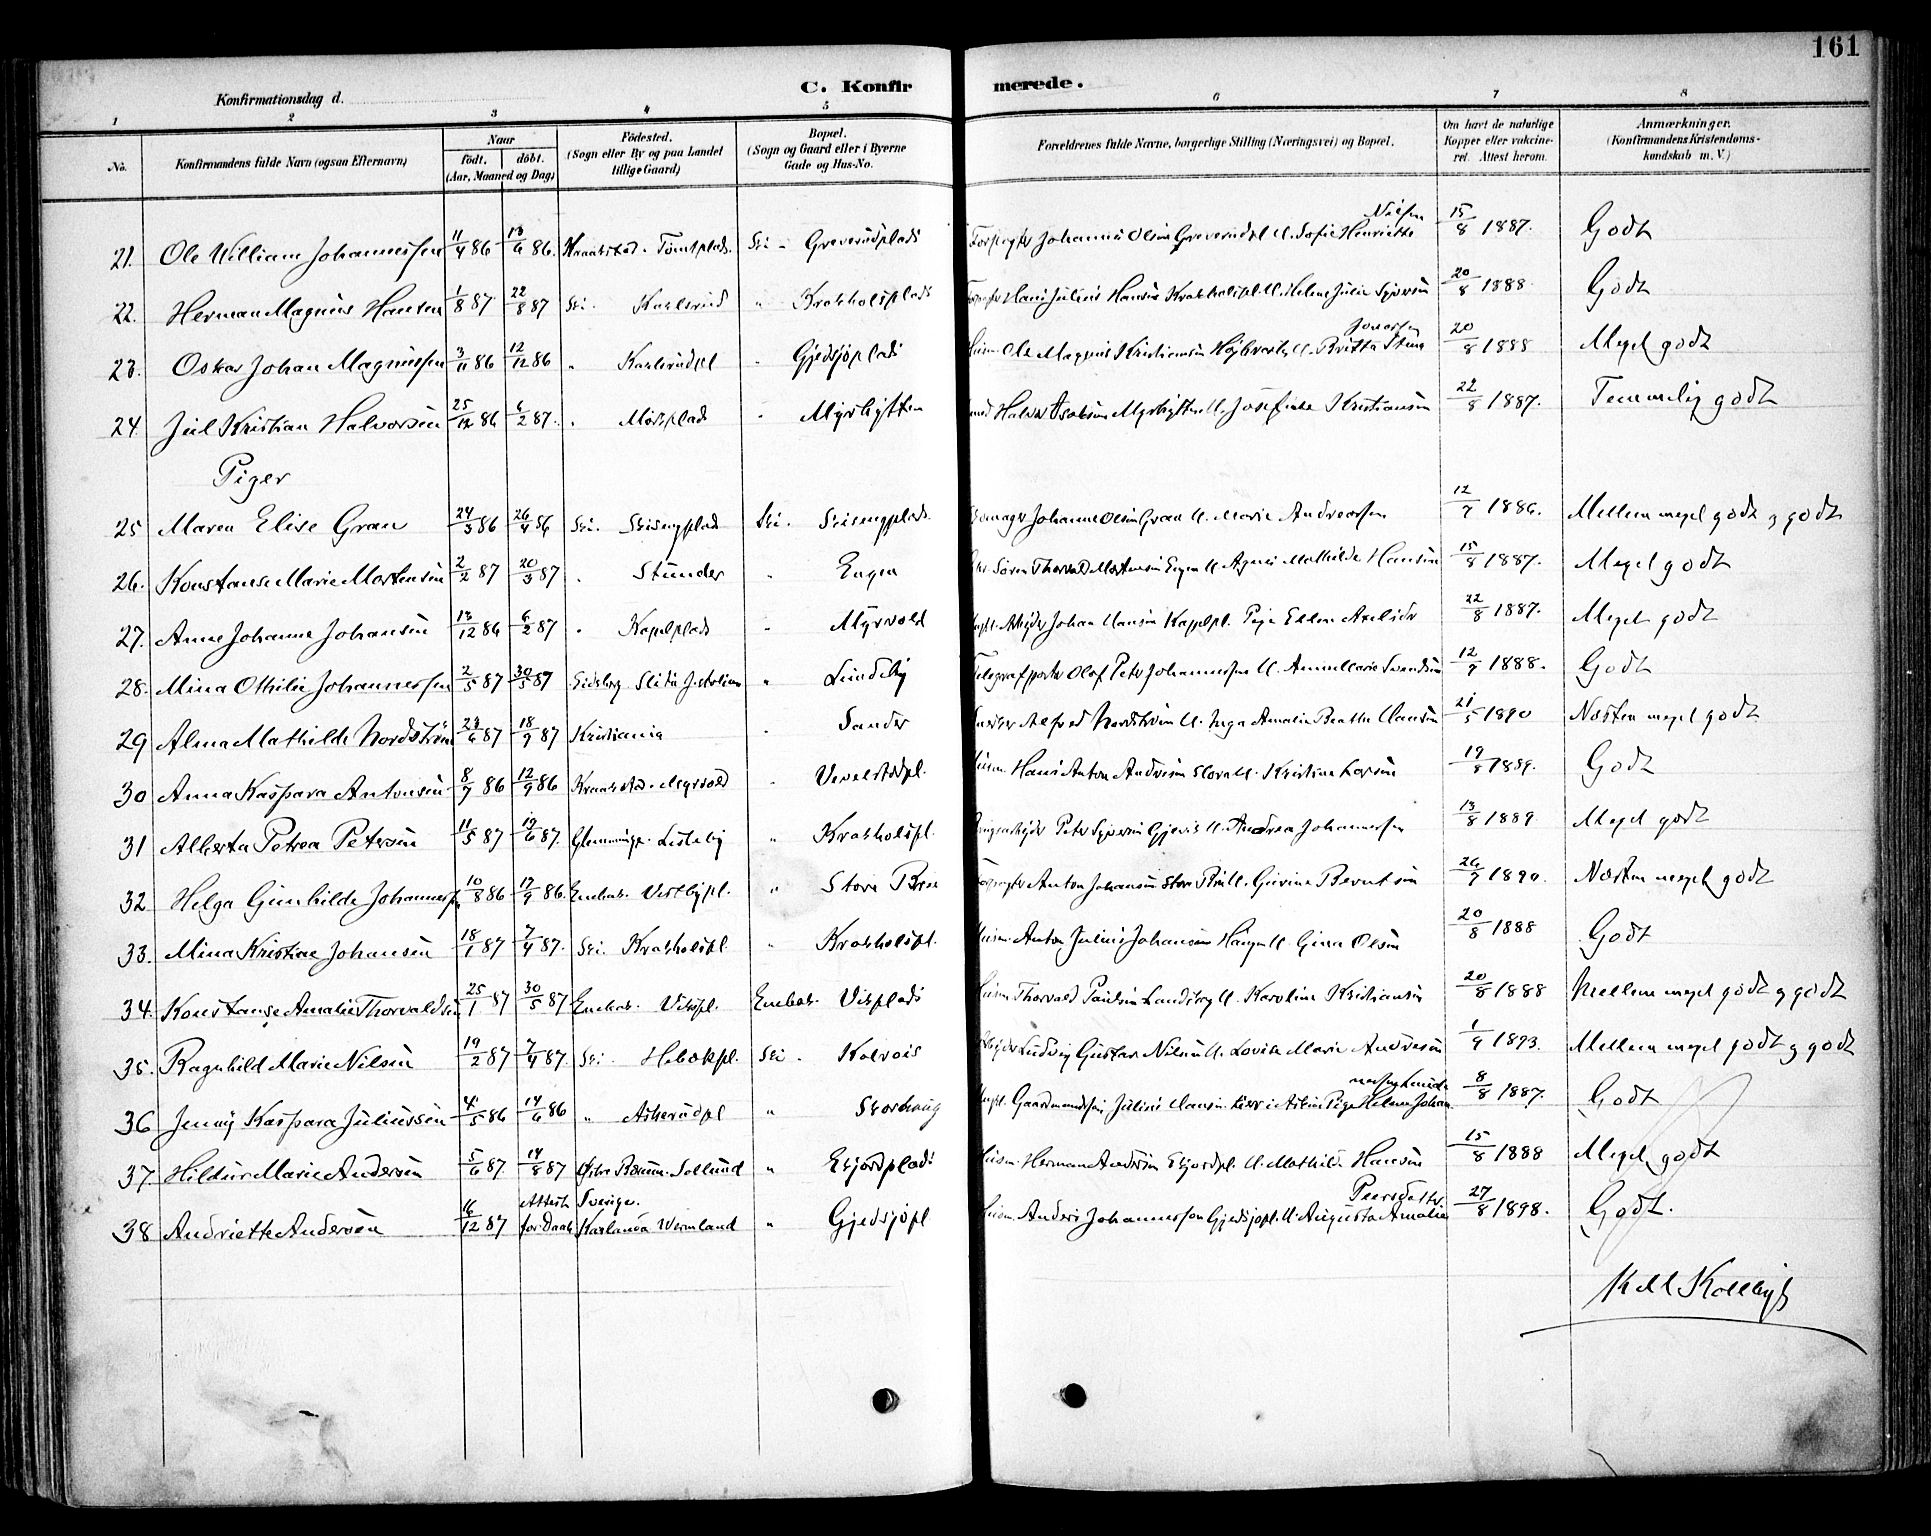 161
C. Konfirmerede.
Konfirmationsdag d.
1 2 3 4 5 6 7 8
No. Konfirmandens fulde Navn (ogsaa Efternavn) Naar født. døbt. (Aar, Maaned og Dag) Fødested. (Sogn eller By og paa Landet tillige Gaard) Bopæl. (Sogn og Gaard eller i Byerne Gade og Hus-No. Forældrenes fulde Navne, borgerlige Stilling (Næringsvei) og Bopæl. Om havt de naturlige Kopper eller vaccineret. Attest herom. Anmærkninger. (Konfirmandens Kristendomskundskab m. V.)
21. Ole William Johannessen 11/4 86 13/6 86. Kraakstad. Tomtplads. Ski - Greverudplads Johannes Olsen Greverudpl. U. Sofie Henriette Nilsen 15/8 1887. Godt
22. Herman Magnus Hansen 1/8 87 22/8 87 Ski. Karlsrud " Krakholsplads Hans Julius Hansen Krakholspl. U. Helene Julie Syversen 20/8 1888 Godt
23. Oskar Johan Magnussen 3/11 86 12/12 86 " Karlsrudpl " Gjedsjøplads Ole Magnus Kristiansen U. Britta Stina Jonassen 20/8 1888 Meget godt
24 Juel Kristian Halvorsen 25/12 86 6/2 87. " Mosplads " Myrhytten Halvor Isaksen Myrhytten U. Josefine Kristiansen 22/8 1887. Temmelig godt
Piger
25 Maren Elise Gran 24/3 86 26/4 86 Ski. Skisengplads Ski. Skisengplads. Johannes Olsen Gran U. Marie Andreassen 12/7 1886. Mellem meget godt og godt
26. Konstanse Marie Mortensen 2/2 87 20/3 87 " Stunder " Engen Søren Thorvald Mortensen Engen U. Agnes Mathilde Hansen 15/8 1887. Meget godt
27. Anne Johanne Johansen 13/12 86 6/2 87 " Kapelplads " Myrvold Johan Hansen Kappelpl. Pige Ellen Axelsdr 22/8 1887. Meget godt
28. Mina Othilie Johannessen 2/5 87 30/5 87 Eidsberg Slitu " Lundeby Olaf Peter Johannessen U. Anne Marie Svendsen 12/9 1888. Godt
29 Alma Mathilde Nordstrøm 23/6 87 18/9 87 Kristiania " Sander Alfred Nordstrøm U. Inga Amalie Beathe Hansen 21/5 1890 Næsten meget godt
30 Anna Kaspara Antonsen 8/7 86 12/9 86 Kraakstad. Myrvold " Vevelstadpl. Hans Anton Andersen U. Kristine Larsen 19/8 1889. Godt
31 Alberta Petrea Petersen 11/5 87 19/6 87. Glemminge. Lisleby " Krakholspl. Peter Syversen Gjevik U. Andrea Johannessen 13/8 1889 Meget godt
32 Helga Gunhilde Johannessen 10/8 86 17/9 86. Enebak. Vestbypl. " Store Bru Anton Johansen Store Bru U. Gurine Berntsen 26/7 1890. Næsten meget godt
33. Mina Kristine Johansen 18/1 87 7/4 87. Ski. Krakholspl " Krakholspl. Anton Julius Johansen Haugen U. Gina Olsen 20/8 1888 Godt
34. Konstanse Amalie Thorvaldsen 25/1 87 30/5 87 Enebak. Vikspl. Enebak. Viksplads Thorvald Paulsen Landsbey U. Karoline Kristiansen 20/8 1888 Mellem meget godt og godt
35. Ragnhild Marie Nilsen 19/2 87 7/4 87. Ski. Hebækpl. Ski. Kolvois Ludvig Gustav Nilsen U. Lovise Marie Andresen 1/9 1893. Mellem meget godt og godt
36 Jenny Kaspara Juliussen 4/5 86 14/6 86 " Askerudpl " Storhaug Gaardmandssøn Julius Hansen Pige Helene Johan 8/8 1887. Godt
37 Hildur Marie Andersen 5/6 87 14/8 87 " Ekjordplads Herman Andersen Ekjordpl. U. Mathilde Hansen 15/8 1888 Meget godt
38 Andriette Andersen 16/12 87 Attest for Daab Sverige. Karlanda Vermland " Gjedsjøpl Anders Johannessen Gjedsjøpl. U. Augusta Amalie Peersdatter 27/8 1898. Godt.